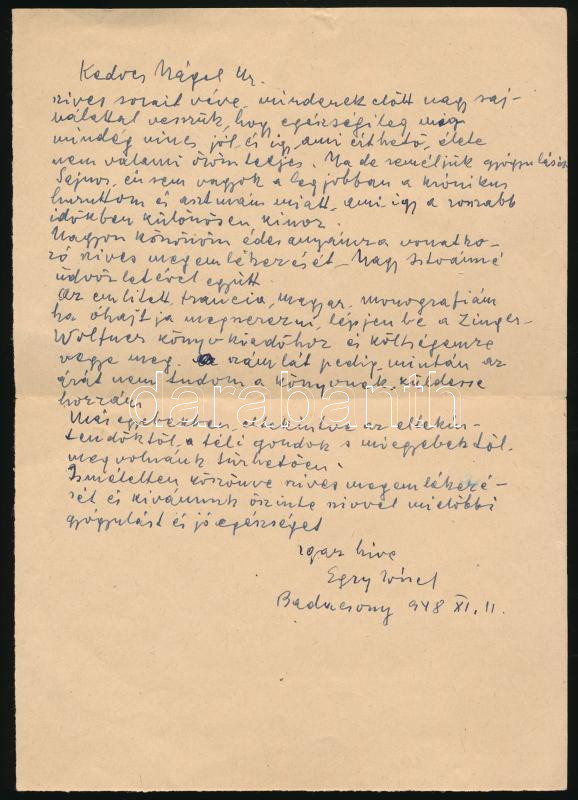 Kedves Nágel Ur.
szives sorait véve, mindenek előtt nagy saj-
nálattal vesszük, hogy egészségileg még
mindég nincs jól, és így, ami érthető, élete
nem valami öröm teljes. Na de reméljük gyógyulását
Sajnos, én sem vagyok a legjobban a krónikus
huruttom és asztmám miatt, ami így a rosszabb
időkben különösen kinoz.
Nagyon köszönöm édesanyámra vonatko-
zó szives megemlékezését – Nagy Istvánné
üdvözletével együtt.
Az emlitett, francia, magyar, monografiám
ha óhajtja megszerezni, lépjen be a Zinger
Wolfner könyvkiadóhoz és költségemre
vegye meg. a számlát pedig, mintán az
árát nem tudom a könyvnek, küldesse
hozzám.
Más egyebekben, eltekintve az eltekin-
tendőktől, a téli gondok s miegyebektől.
megvolnánk tűrhetően.
Ismételten köszönve szives megemlékezé-
sét és kivánunk őszinte szivvel mielőbbi
gyógyulást és jó egészséget
igaz hive
Egry József
Badacsony 948 XI. 11.
darabanth